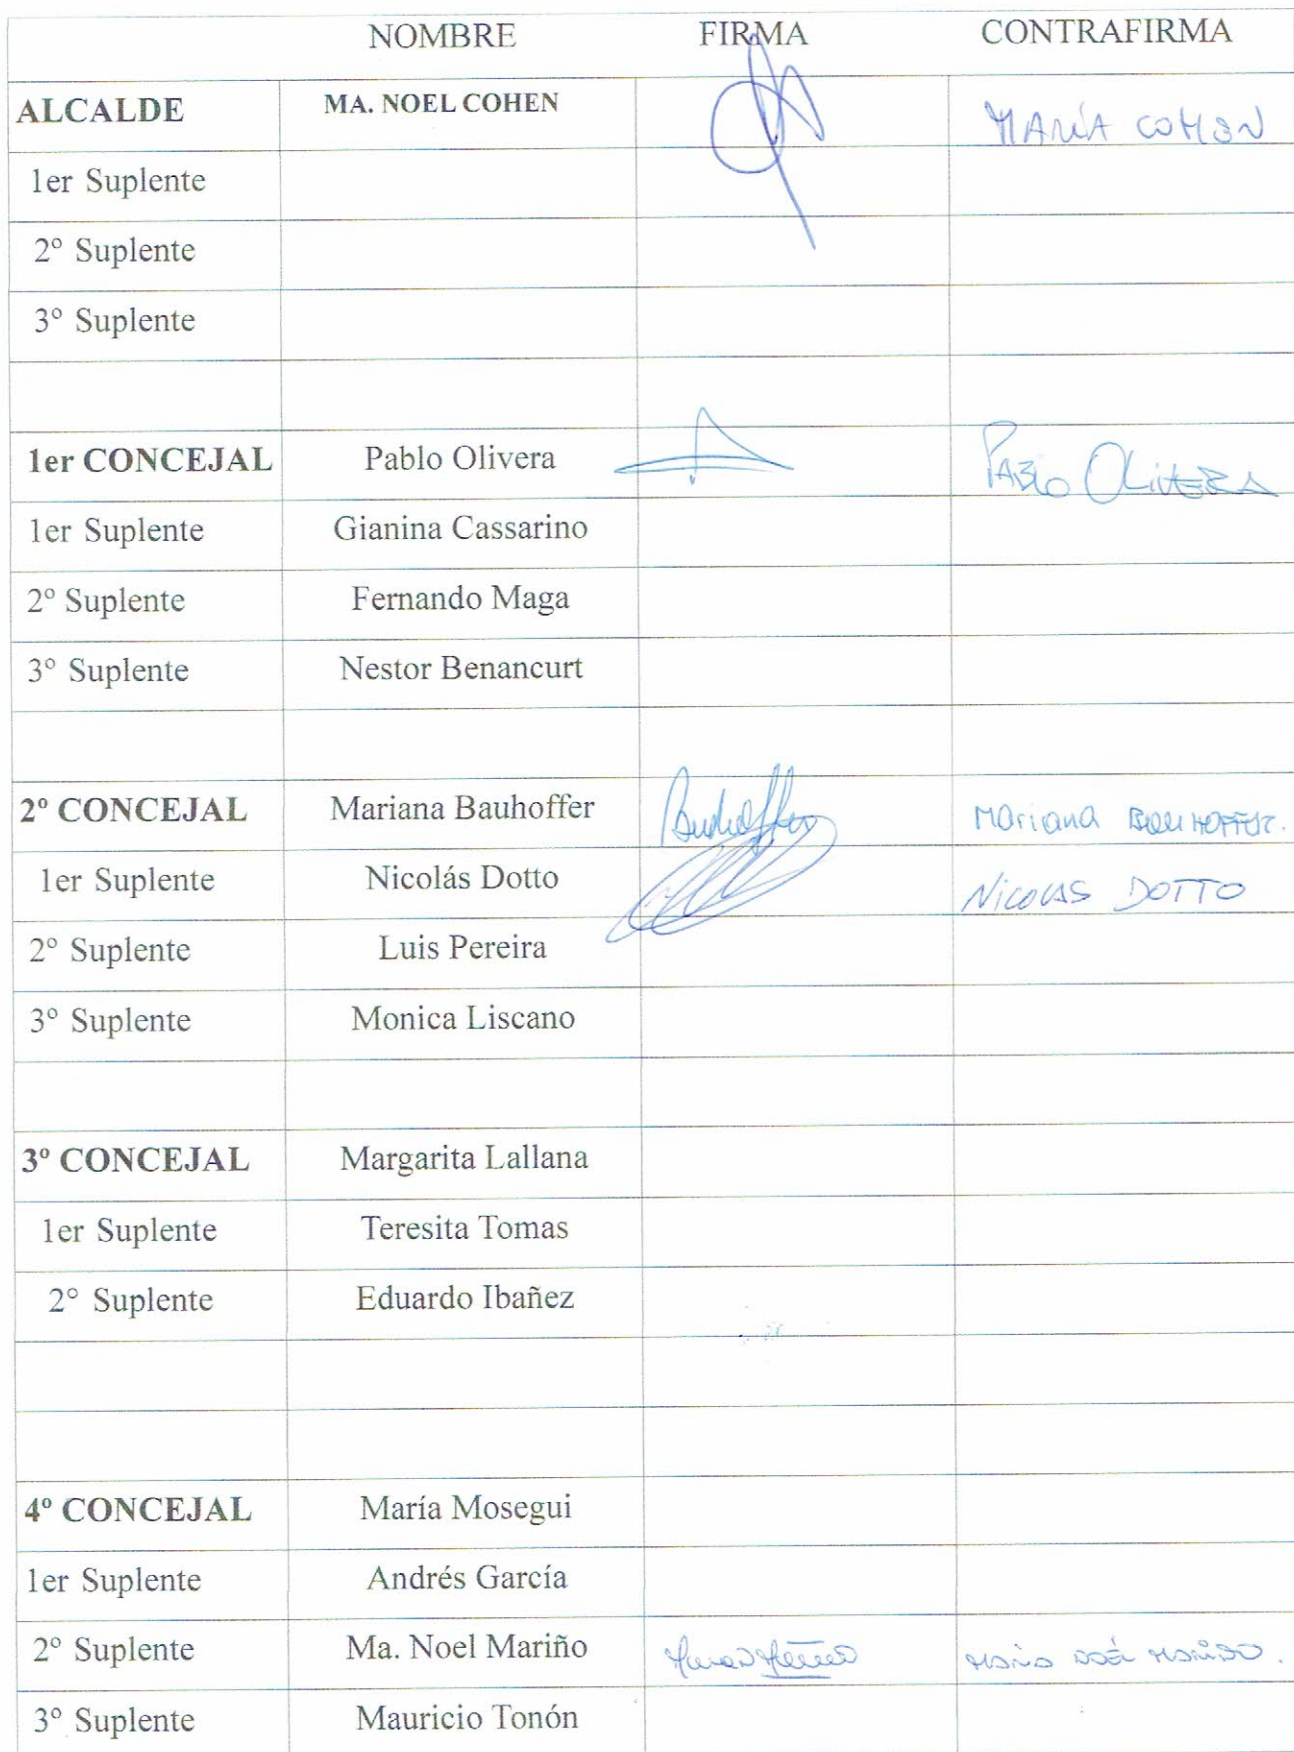 NOMBRE FIRMA CONTRAFIRMA
ALCALDE MA. NOEL COHEN MARÍA COHEN
1er Suplente
2º Suplente
3º Suplente
1er CONCEJAL Pablo Olivera PABLO OLIVERA
1er Suplente Gianina Cassarino
2º Suplente Fernando Maga
3º Suplente Nestor Benancurt
2º CONCEJAL Mariana Bauhoffer Bauhoffer Mariana BAUHOFFER.
1er Suplente Nicolás Dotto NICOLAS DOTTO
2º Suplente Luis Pereira
3º Suplente Monica Liscano
3º CONCEJAL Margarita Lallana
1er Suplente Teresita Tomas
2° Suplente Eduardo Ibañez
4º CONCEJAL María Mosegui
1er Suplente Andrés García
2º Suplente Ma. Noel Mariño María Noél Mariño.
3º Suplente Mauricio Tonón